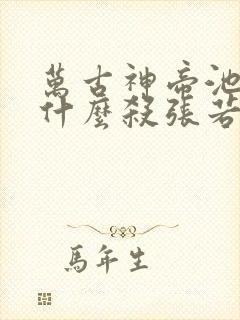 萬古神帝池
什麼殺張若
馬年生